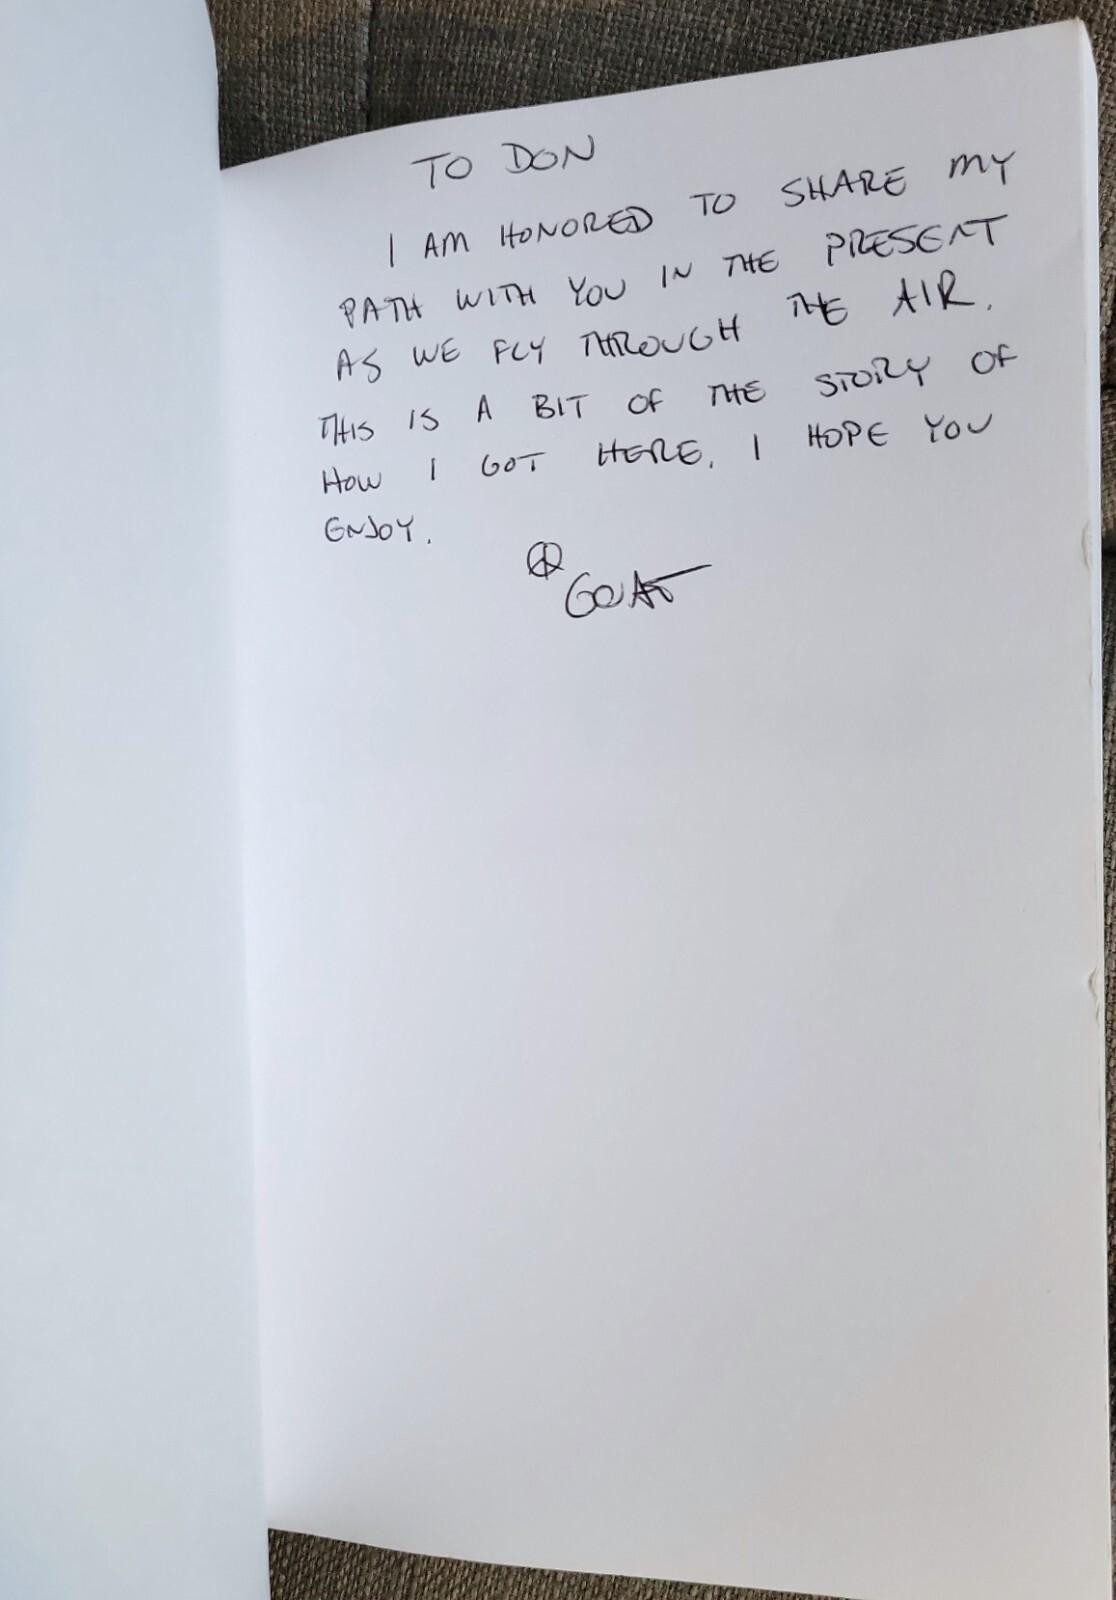 TO DON
I AM HONORED TO SHARE MY
PATH WITH YOU IN THE PRESENT
AS WE FLY THROUGH THE AIR.
THIS IS A BIT OF THE STORY OF
HOW I GOT HERE. I HOPE YOU
ENJOY.
☮ GOAT